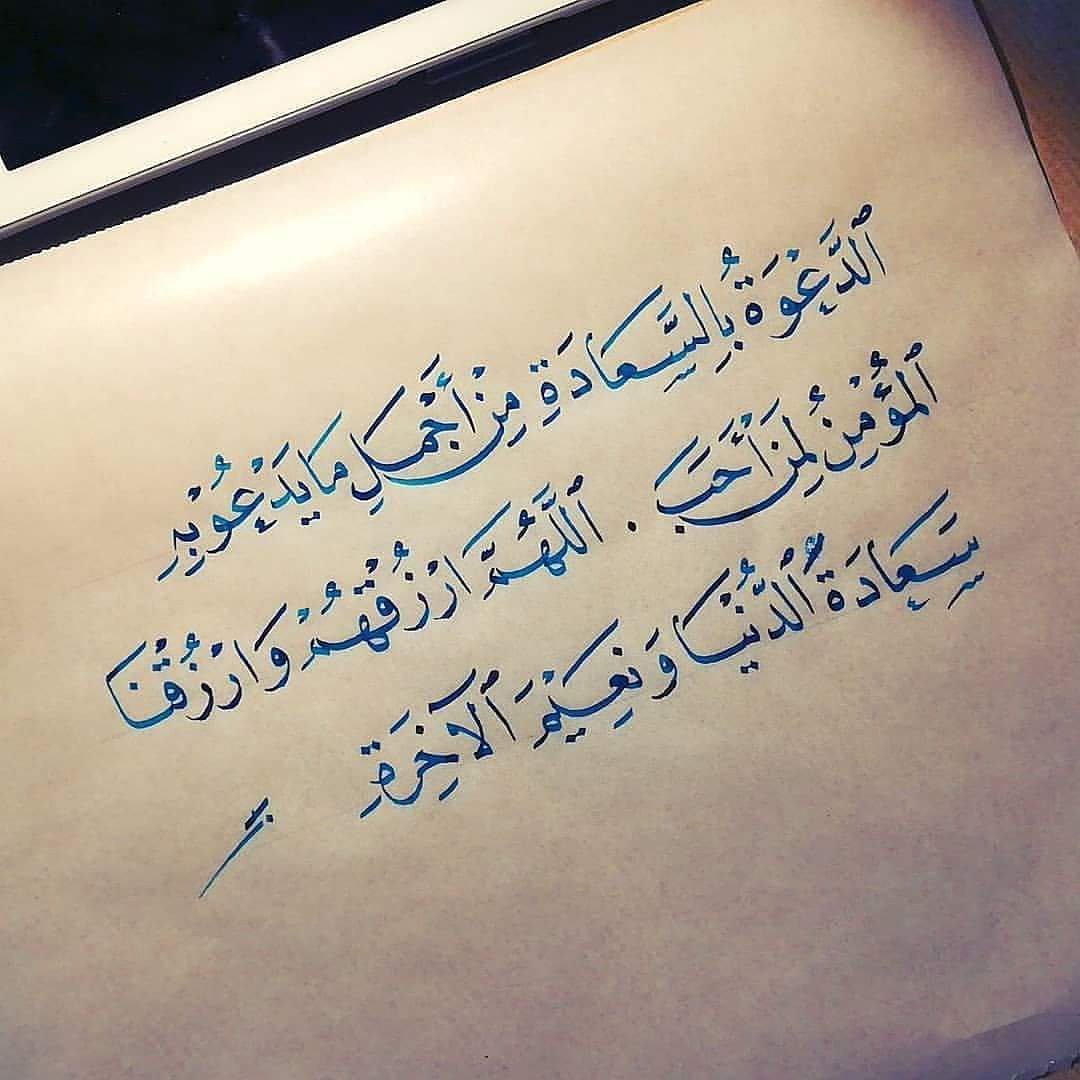 ٱلدَّعْوَةُ بِالسَّعَادَةِ مِنْ أَجْمَلِ مَا يَدْعُو بِهِ
ٱلْمُؤْمِنُ لِمَنْ أَحَبَّ . ٱللَّهُمَّ ارْزُقْهُمْ وَارْزُقْنَا
سَعَادَةَ ٱلدُّنْيَا وَنَعِيمَ ٱلْآخِرَةِ